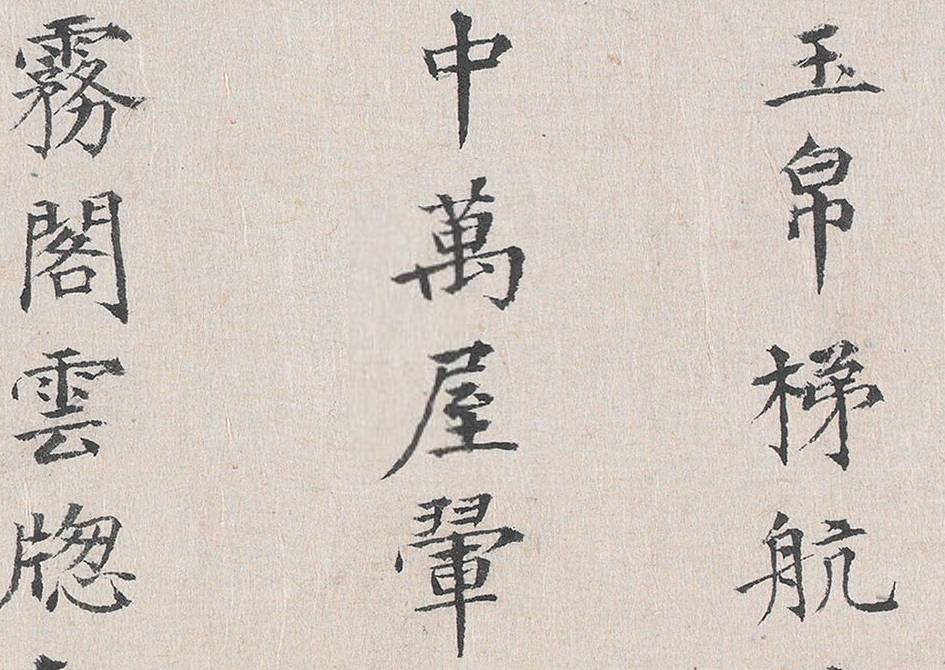 玉帛梯航
中萬屋翬
霧閣雲牕